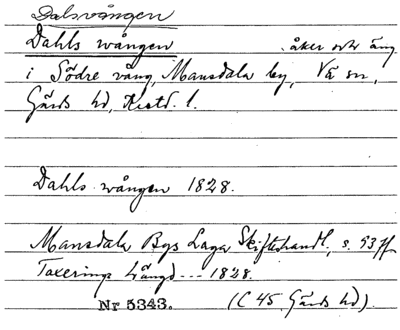 Dalsvången
Dahls wången åker och äng
i Södre vång, Mansdala by, Vä sn,
Gärds hd, Kristd. l.
Dahls wången 1828.
Mansdala Bys Laga Skifteshandl., s. 93 ff
Taxerings längd --- 1828.
Nr 5343. (C 45, Gärds hd).